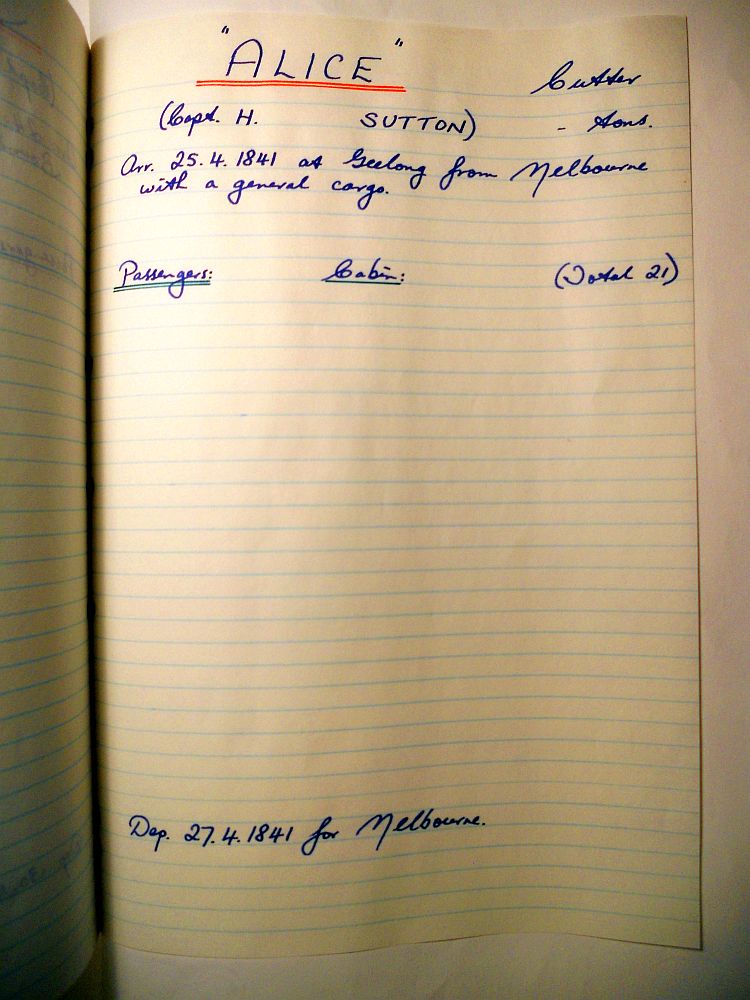 "ALICE" Cutter
(Capt. H. SUTTON) - tons.
Arr. 25.4.1841 at Geelong from Melbourne
with a general cargo.
Passengers: Cabin: (Total 21)
Dep. 27.4.1841 for Melbourne.